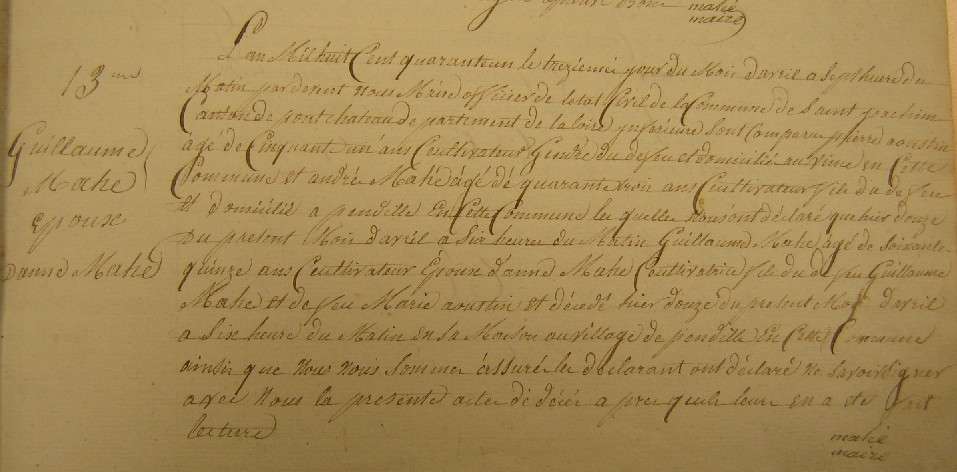 mahé
maire
13me
Guillaume
Mahé
Epoux
Danne Mahé
L'an Mil huit Cent quarante un le treizieme jour du Mois davril a Sept heure du
Matin par devent nous Maire officiser de letat Civil de la Commune de Saint joachim
Canton de pontchateau departement de la loire ynferieure Sont Comparu pierre aoustin
âgé de Cinquante un ans Cultivateur Gendre du defeu et domicilié au Vime en Cette
Commune et andré Mahé âgé dé quarante trois ans Cultivateur fils du defeu
Et domicilié a pendille En Cette Commune les quelles nous ont déclaré que hier douze
Du present Mois davril a Six heures du Matin Guillaume Mahé âgé de Soixante
quinze ans Cultivateur Epoux danne Mahé Cultivatrice fils du defeu Guillaume
Mahé et defeu Marie aoustin et décedé hier douze du present Mois davril
a Six heure du Matin en Sa Maison au village de pendille En Cette Comune
ainsin que Nous Nous Sommes assuré les déclarant ont déclaré ne Savoir Signer
avec Nous la presente acte dé décès a pres quelle leure en a eté fait
lecture
mahé
maire